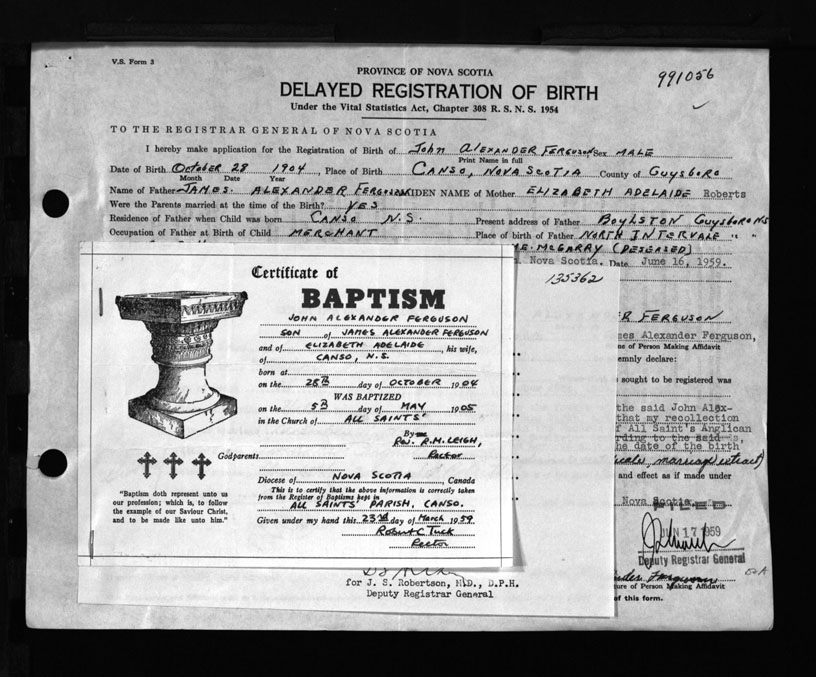 V.S. Form 3
PROVINCE OF NOVA SCOTIA
991056
DELAYED REGISTRATION OF BIRTH
Under the Vital Statistics Act, Chapter 308 R. S. N. S. 1954
TO THE REGISTRAR GENERAL OF NOVA SCOTIA
I hereby make application for the Registration of Birth of John Alexander Ferguson Sex MALE
Print Name in full
Date of Birth October 28 1904, Place of Birth CANSO, NOVA SCOTIA County of Guysboro
Month Date Year
Name of Father JAMES. ALEXANDER FERGUSON MAIDEN NAME of Mother ELIZABETH ADELAIDE Roberts
Were the Parents married at the time of the Birth? YES
Residence of Father when Child was born CANSO N.S. Present address of Father BOYLSTON GUYSBORO NS
Occupation of Father at Birth of Child MERCHANT Place of birth of Father NORTH INTERVALE " "
McGARRY (DESEASED)
Nova Scotia. Date June 16, 1959.
135362
Certificate of
BAPTISM
JOHN ALEXANDER FERGUSON
SON of JAMES ALEXANDER FERGUSON
and of ELIZABETH ADELAIDE, his wife,
of CANSO, N.S.
born at
on the 28th day of OCTOBER 1904
WAS BAPTIZED
on the 5th day of MAY 1905
in the Church of ALL SAINTS'
By
Rev. R.M. LEIGH,
Rector
Godparents
Diocese of NOVA SCOTIA, Canada
This is to certify that the above information is correctly taken
from the Register of Baptisms kept in
ALL SAINTS' PARISH, CANSO.
Given under my hand this 23rd day of March 1959
Robert C Tuck
Rector
"Baptism doth represent unto us
our profession; which is, to follow
the example of our Saviour Christ,
and to be made like unto him."
R FERGUSON
mes Alexander Ferguson,
me of Person Making Affidavit
emnly declare:
sought to be registered was
the said John Alex-
that my recollection
f All Saint's Anglican
rding to the said is,
the date of the birth
marriage extract)
and effect as if made under
Nova Scotia.
JUN 17 1959
Deputy Registrar General
ture of Person Making Affidavit
of this form.
for J. S. Robertson, M.D., D.P.H.
Deputy Registrar General